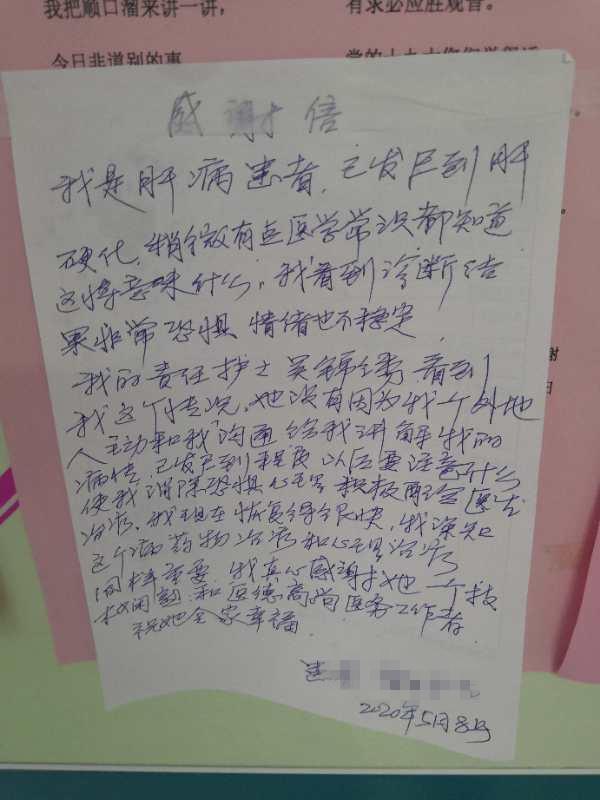 我把顺口溜来讲一讲，
有求必应胜观音。
今日非道别的事
感谢信
我是肝病患者，已发展到肝
硬化，稍微有点医学常识都知道
这将意味什么，我看到诊断结
果非常恐惧，情绪也不稳定
我的责任护士吴锦秀看到
我这个情况，她没有因为我一个外地
人主动和我沟通给我讲解我的
病情，已发展到程度以后要注意什么
使我消除恐惧心里积极配合医生
治疗，我现在恢复得很快，我深知
这个病药物治疗和心里治疗
同样重要，我真心感谢她一个技
术闲熟和医德高尚医务工作者
祝她全家幸福
患
2020年5月8号
谢
日